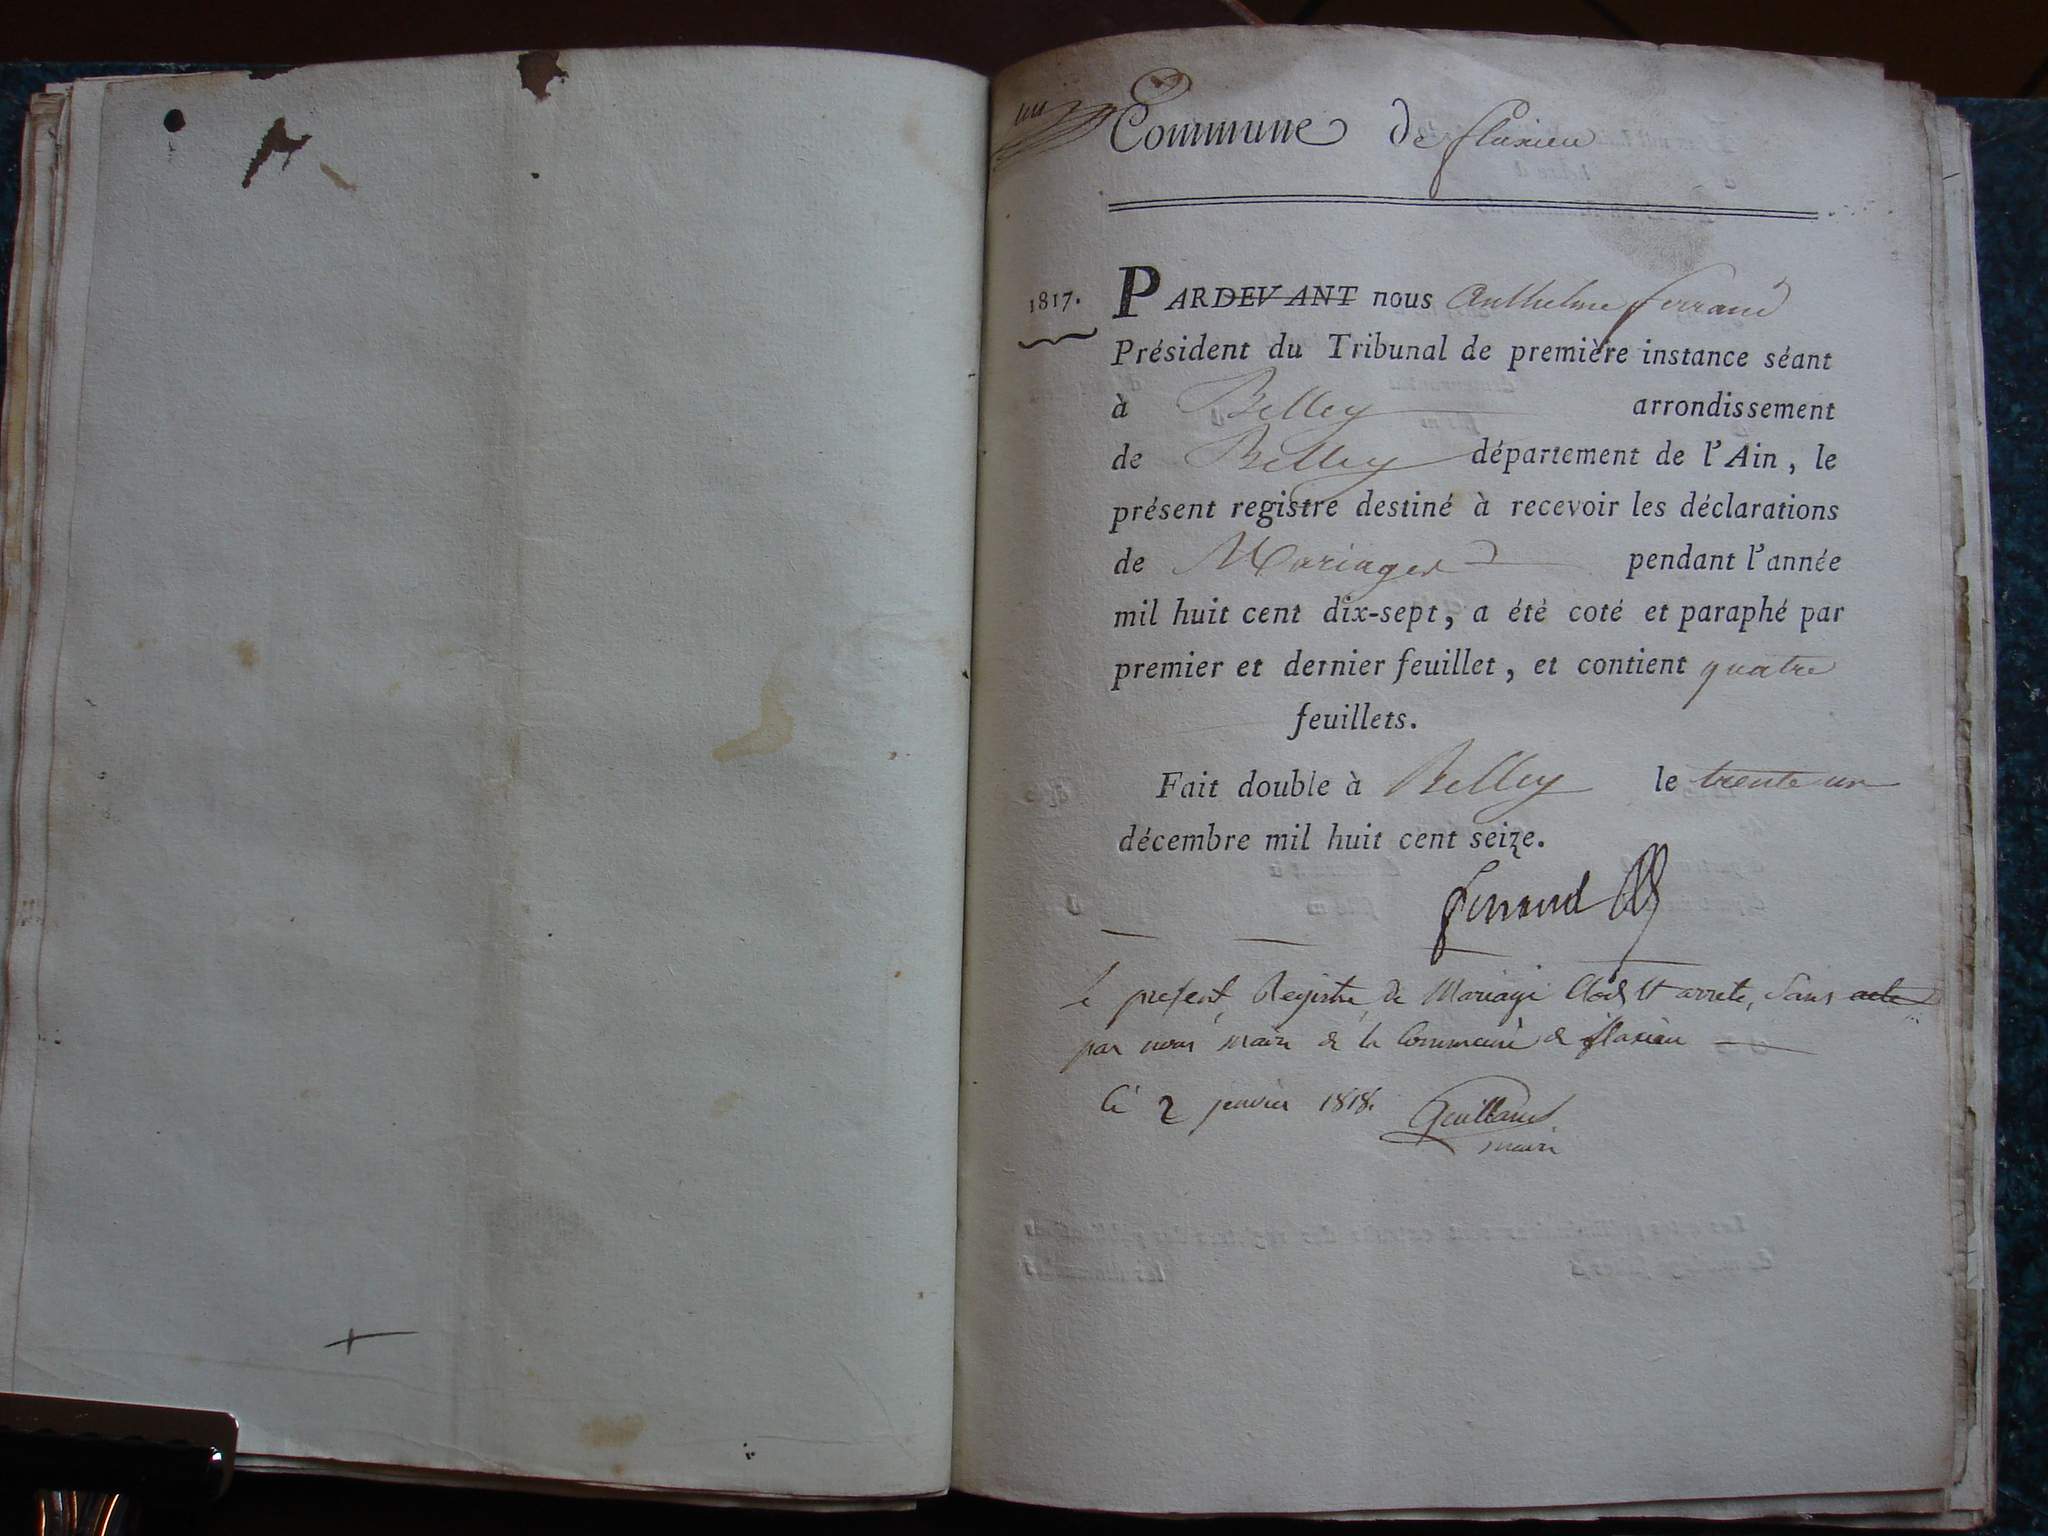 un
Commune de flaxieu
1817. PARDEVANT nous Anthelme ferrand
Président du Tribunal de première instance séant
à Belley arrondissement
de Belley département de l'Ain, le
présent registre destiné à recevoir les déclarations
de Mariages pendant l'année
mil huit cent dix-sept, a été coté et paraphé par
premier et dernier feuillet, et contient quatre
feuillets.
Fait double à Belley le trente un
décembre mil huit cent seize.
ferrand
le present Registre de Mariage Clos et arrete, sans acte
par nous maire de la Commune de flaxieu
Ce 2 janvier 1818. Guilland
maire